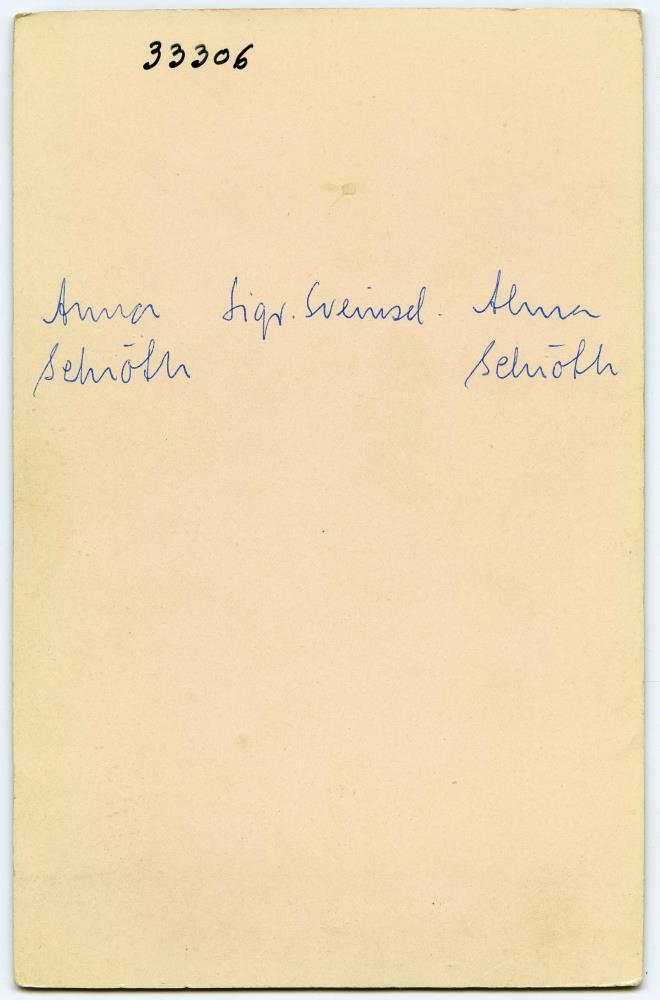 33306
Anna Sigr. Sveinsd. Alma
Schiöth Schiöth